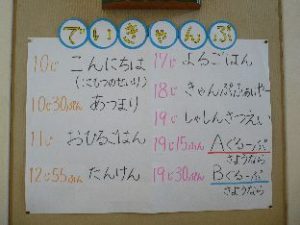 でいきゃんぷ
10じ こんにちは
(にもつのせいり)
10じ30ぷん あつまり
11じ おひるごはん
12じ55ふん たんけん
17じ よるごはん
18じ きゃんぷふぁいやー
19じ しゃしんさつえい
19じ15ふん Aぐるーぷ
さようなら
19じ30ぷん Bぐるーぷ
さようなら